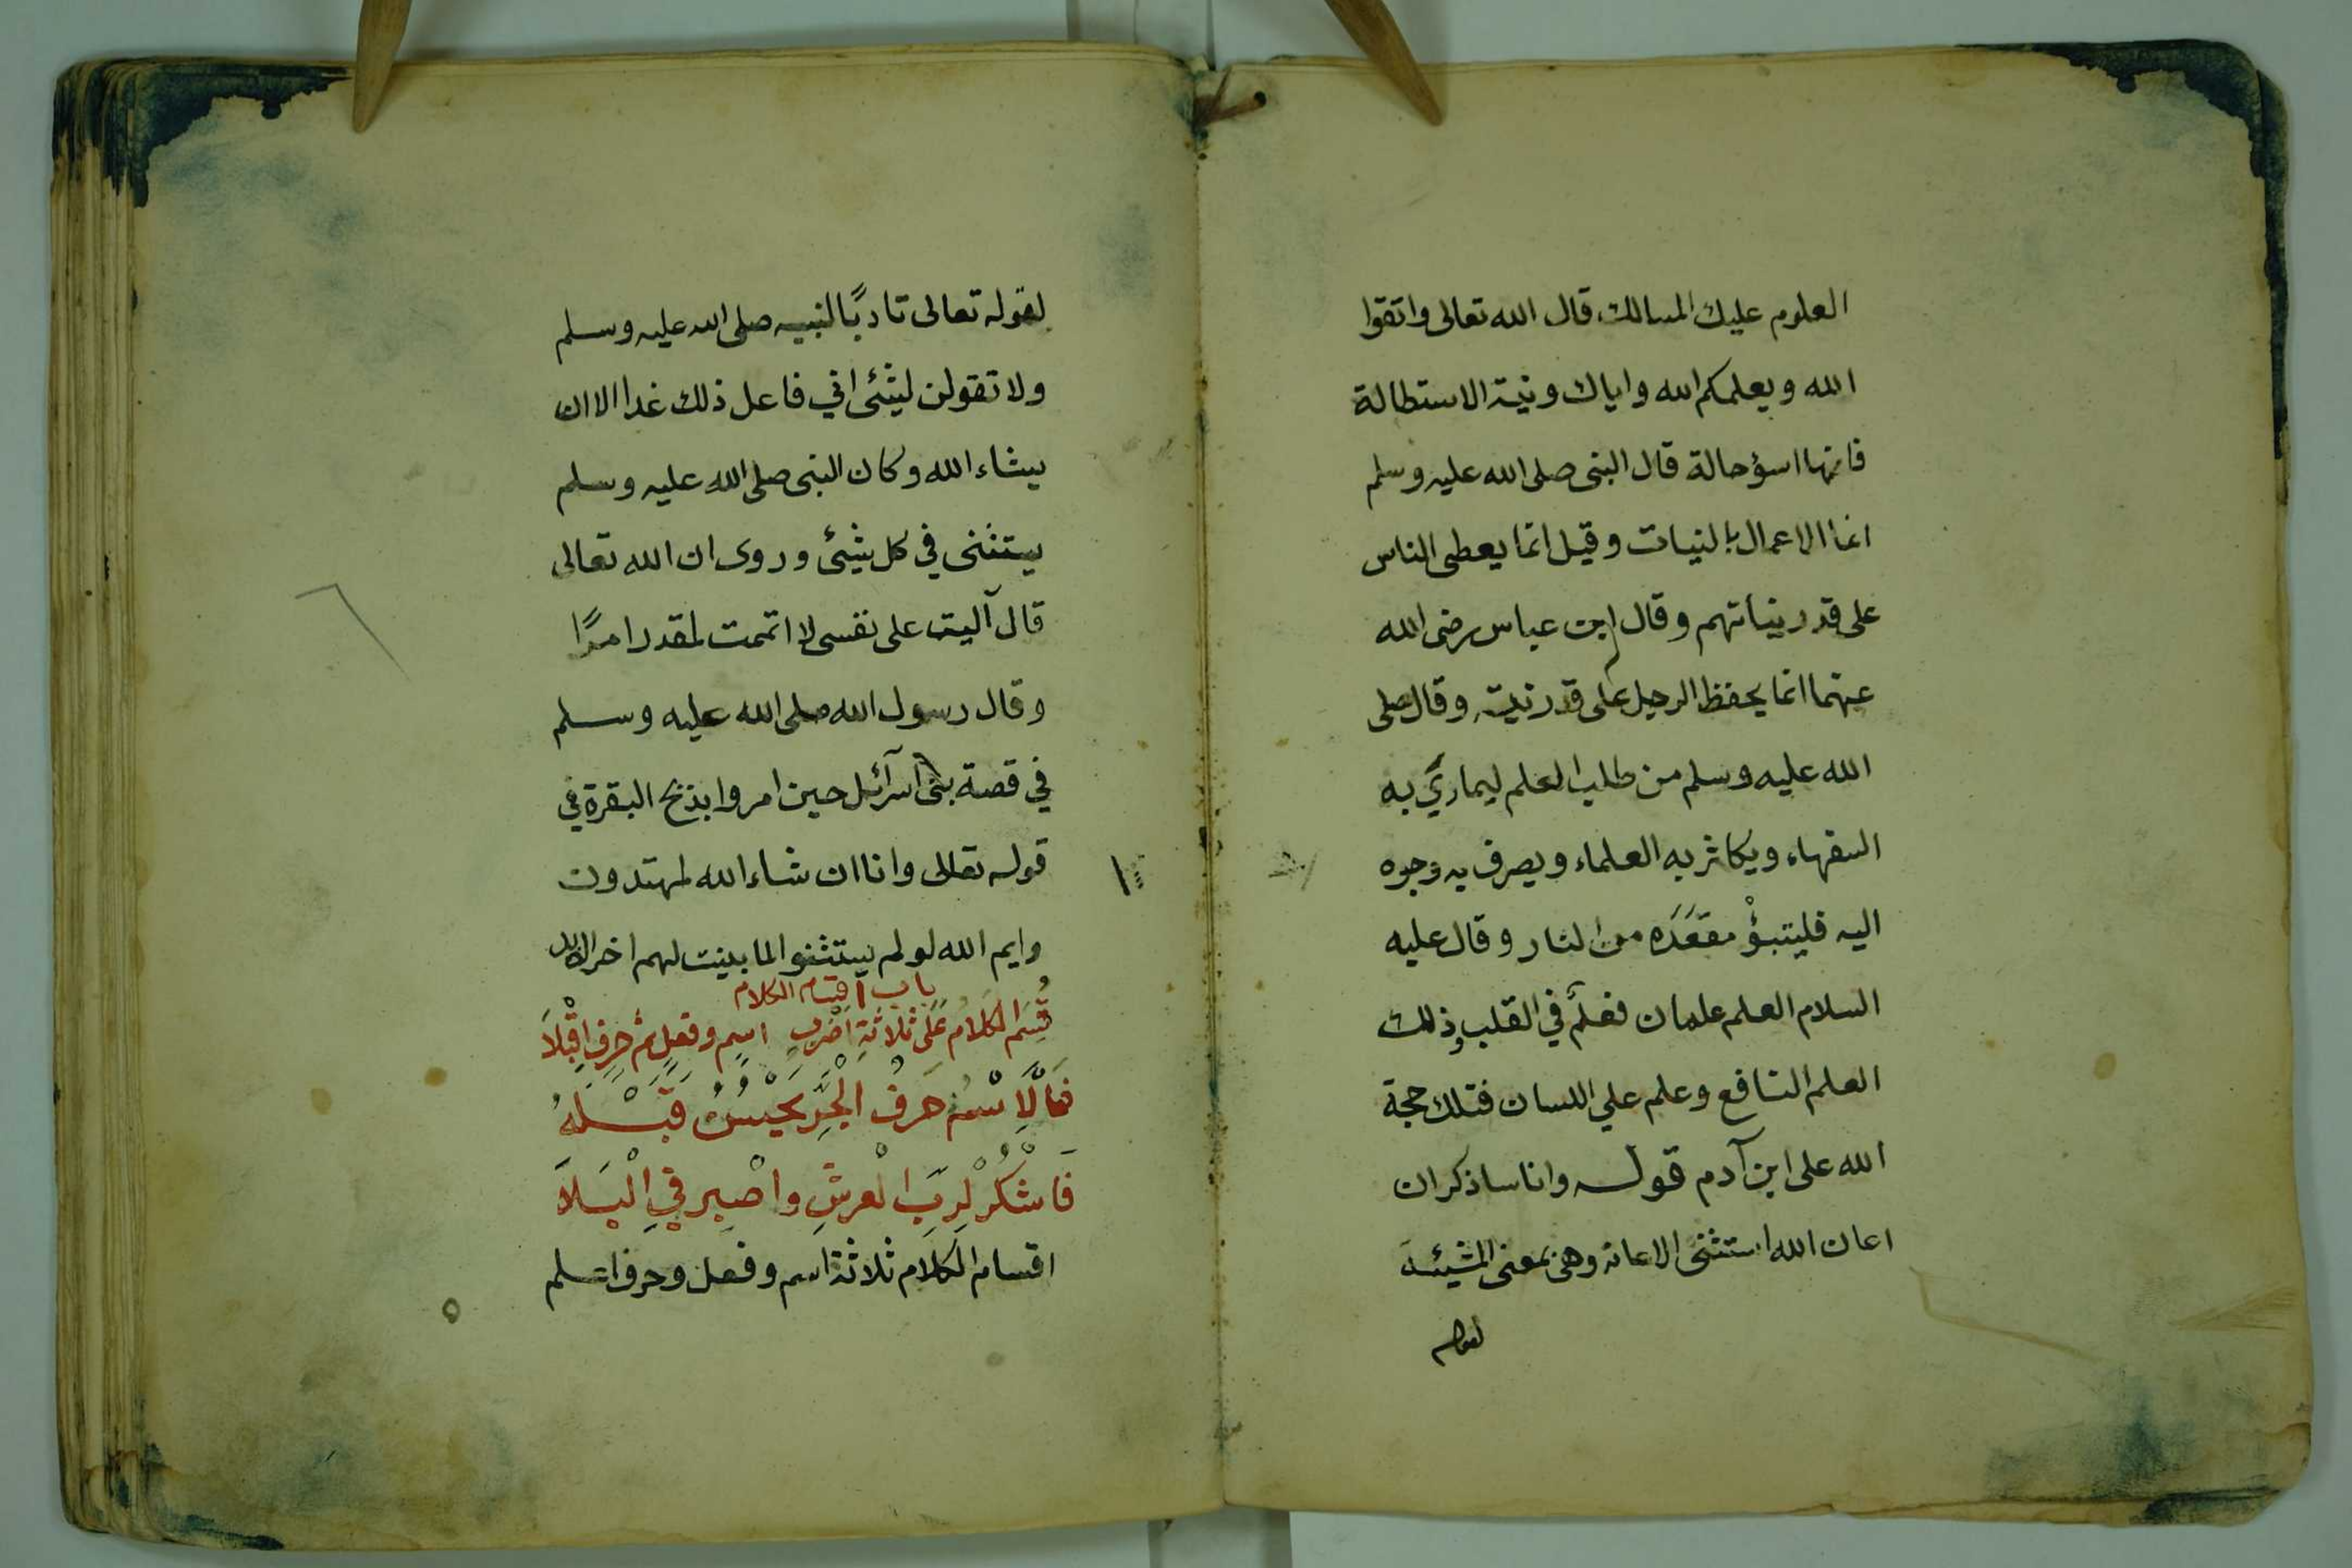 العلوم عليك المسالك قال الله تعالى واتقوا
الله ويعلمكم الله واياك ونية الاستطالة
فانها اسؤ حالة قال النبى صلى الله عليه وسلم
انما الاعمال بالنيات وقيل انما يعطى الناس
على قدر نياتهم وقال ابن عباس رضى الله
عنهما انما يحفظ الرجل على قدر نيته وقال صلى
الله عليه وسلم من طلب العلم ليماري به
السفهاء ويكاثر به العلماء ويصرف به وجوه
اليه فليتبؤ مقعده من النار وقال عليه
السلام العلم علمان فعلم في القلب وذلك
العلم النافع وعلم علي اللسان فتلك حجة
الله على ابن آدم قوله وانا ساذكر ان
اعان الله استثنى الاعانه وهى بمعنى المشيئة
لقوله
لقوله تعالى تاديًا لنبيه صلى الله عليه وسلم
ولا تقولن لشئ اني فاعل ذلك غدا الا ان
يشاء الله وكان النبى صلى الله عليه وسلم
يستثنى في كل شيئ وروى ان الله تعالى
قال آليت على نفسى لا اتممت لمقدر امرًا
وقال رسول الله صلى الله عليه وسلم
في قصة بنى اسرآئل حين امروا بذبح البقرة في
قوله تعالى وانا ان شاء الله لمهتدون
وايم الله لو لم يستثنوا لما بينت لهم اخر الابد
باب اقسام الكلام
قُسِمَ الكَلامُ عَلَى ثلاثَةِ اَضْرُبٍ اسمٍ وفعلٍ ثم حرفٍ اقْبَلاَ
فَالْاِسْمُ حَرفُ الْجَرِّ يَحْسُنُ قَبْلَهُ
فَاشْكُرْ لِرَبِّ الْعرشِ واصْبِر فِي الْبَلاَ
اقسام الكلام ثلاثة اسم وفعل وحرف اعلم